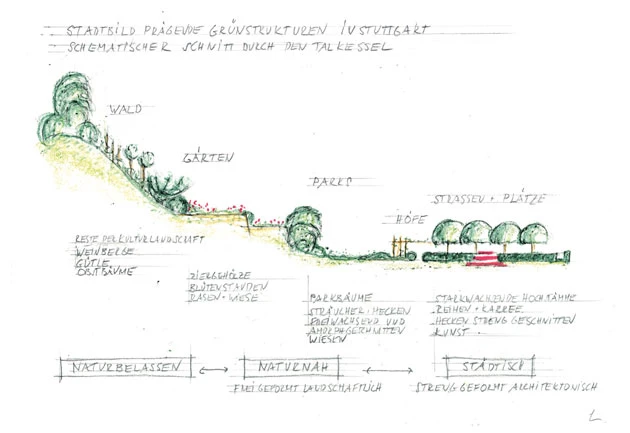 STADTBILD PRÄGENDE GRÜNSTRUKTUREN IN STUTTGART
SCHEMATISCHER SCHNITT DURCH DEN TALKESSEL
WALD
GÄRTEN
PARKS
STRASSEN + PLÄTZE
HÖFE
RESTE DER KULTURLANDSCHAFT
WEINBERGE
GÜTLE
OBSTBÄUME
ZIERGEHÖLZE
BLÜTENSTAUDEN
RASEN + WIESE
PARKBÄUME
STRÄUCHER + HECKEN
FREIWACHSEND UND
AMORPH GESCHNITTEN
WIESEN
STARKWACHSENDE HOCHSTÄMME
REIHEN + KARREE
HECKEN STRENG GESCHNITTEN
KUNST
NATURBELASSEN
NATURNAH
STÄDTISCH
FREI GEFORMT LANDSCHAFTLICH
STRENG GEFORMT ARCHITEKTONISCH